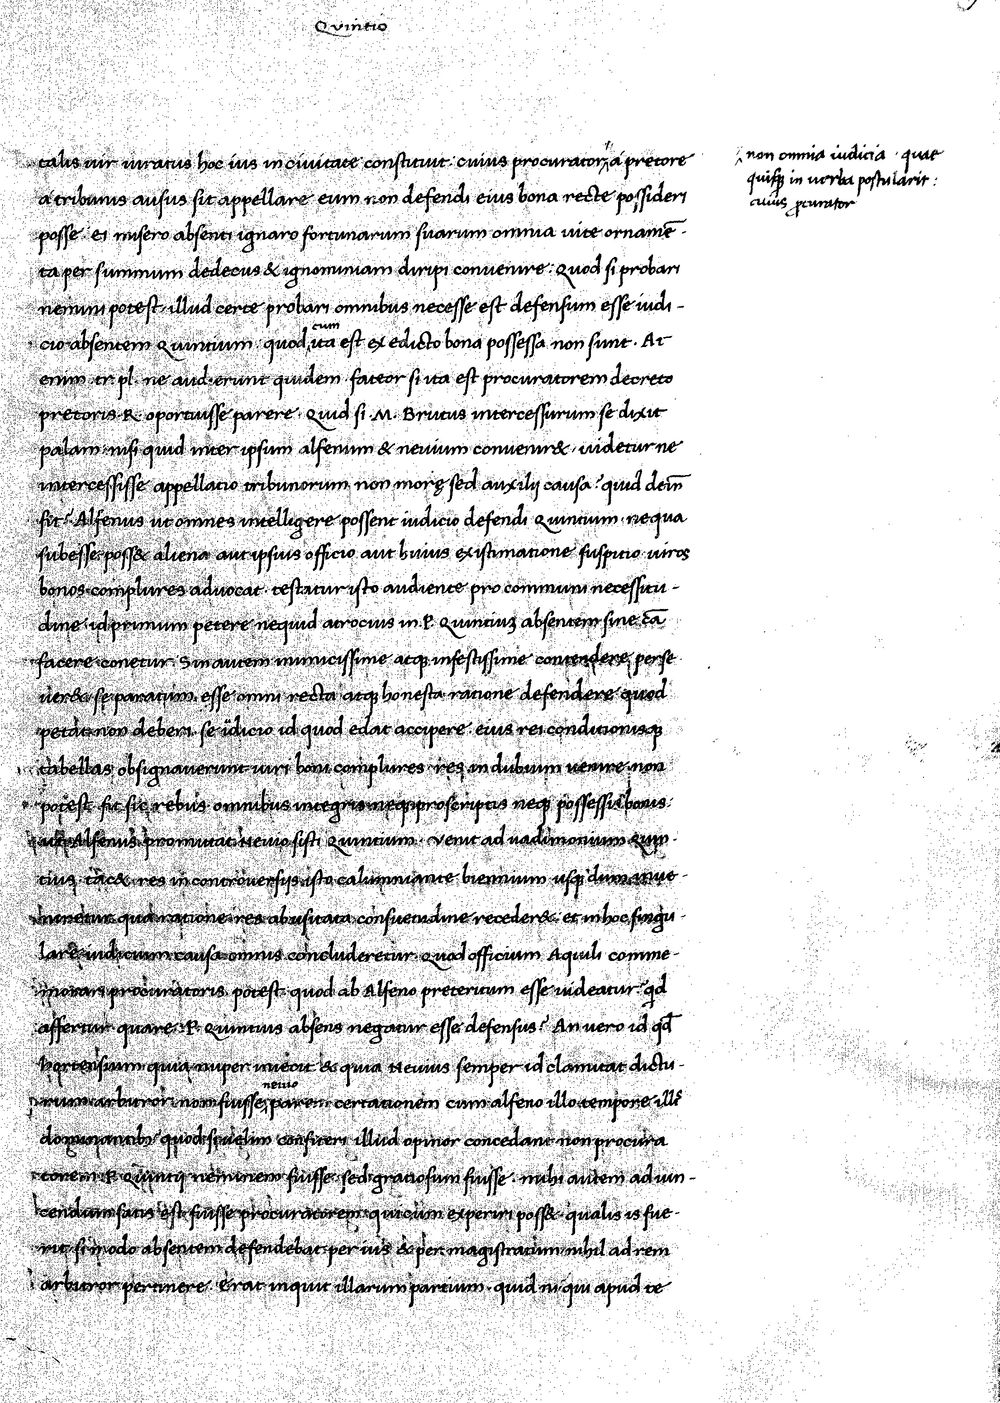 Quintio
talis uir iuratus hoc ius in ciuitate constituit. cuius procurator a pretore
a tribunis ausus sit appellare eum non defendi eius bona recte possideri
posse. ei misero absenti ignaro fortunarum suarum omnia uite ornamē-
ta per summum dedecus & ignominiam diripi conuenire. Quod si probari
nemini potest. illud certe probari omnibus necesse est defensum esse iudi-
cio absentem Quintium. quod cum ita est ex edicto bona possessa non sunt. At
enim tr. pl. ne audierunt quidem. fateor si ita est procuratorem decreto
pretoris R. oportuisse parere. Quid si M. Brutus intercessurum se dixit
palam. nisi quid inter ipsum alfenum & neuium conuenir&. uidetur ne
intercessisse appellatio tribunorum non morę sed auxilij causa? quid dein̄
fit? Alfenus ut omnes intelligere possent iudicio defendi Quintium. nequa
subesse poss& aliena aut ipsius officio aut huius existimatione suspitio uiros
bonos complures aduocat. testatur isto audiente pro communi necessitu-
dine. id primum petere nequid atrocius in P. Quintiuȝ absentem sine cā
facere conetur. Sin autem inimicissime atqȝ infestissime contendere perse
uer& se paratum esse omni recta atqȝ honesta ratione defendere quod
petat non deberi. se iūdicio id quod edat accipere. eius rei conditionisqȝ
tabellas obsignauerunt uiri boni complures. res in dubium uenire non
potest. fit sic rebus omnibus integris neqȝ proscriptis neqȝ possessis bonis.
ut Alfenus promittat Neuio sisti Quintium. Venit ad uadimonium Quin-
tius. iac& res in controuersijs isto calumniante biennium usqȝ dum inue-
niretur qua ratione res ab usitata consuetudine receder&. et in hoc singu-
lare iudicium causa omnis concluderetur. Quod officium Aquili comme-
morari procuratoris potest. quod ab Alfeno preteritum esse uideatur? qd
affertur quare P. Quintius absens negatur esse defensus? An uero id qd̄
hortensium quia nuper iniecit & quia Neuius semper id clamitat dictu-
rum arbitror. non fuisse neuio parem certationem cum alfeno illo tempore. illis
dominantibȝ. quod si uelim confiteri illud opinor concedant non procura
torem P. Quintij neminem fuisse. sed gratiosum fuisse. mihi autem ad uin-
cendum satis est fuisse procuratorem. quicum experiri poss&. qualis is fue-
rit. si modo absentem defendebat per ius & per magistratum nihil ad rem
arbitror pertinere. Erat inquit illarum partium. quid ni qui apud te
non omnia iudicia. quae
quisqȝ in uerba postularit:
cuius procurator